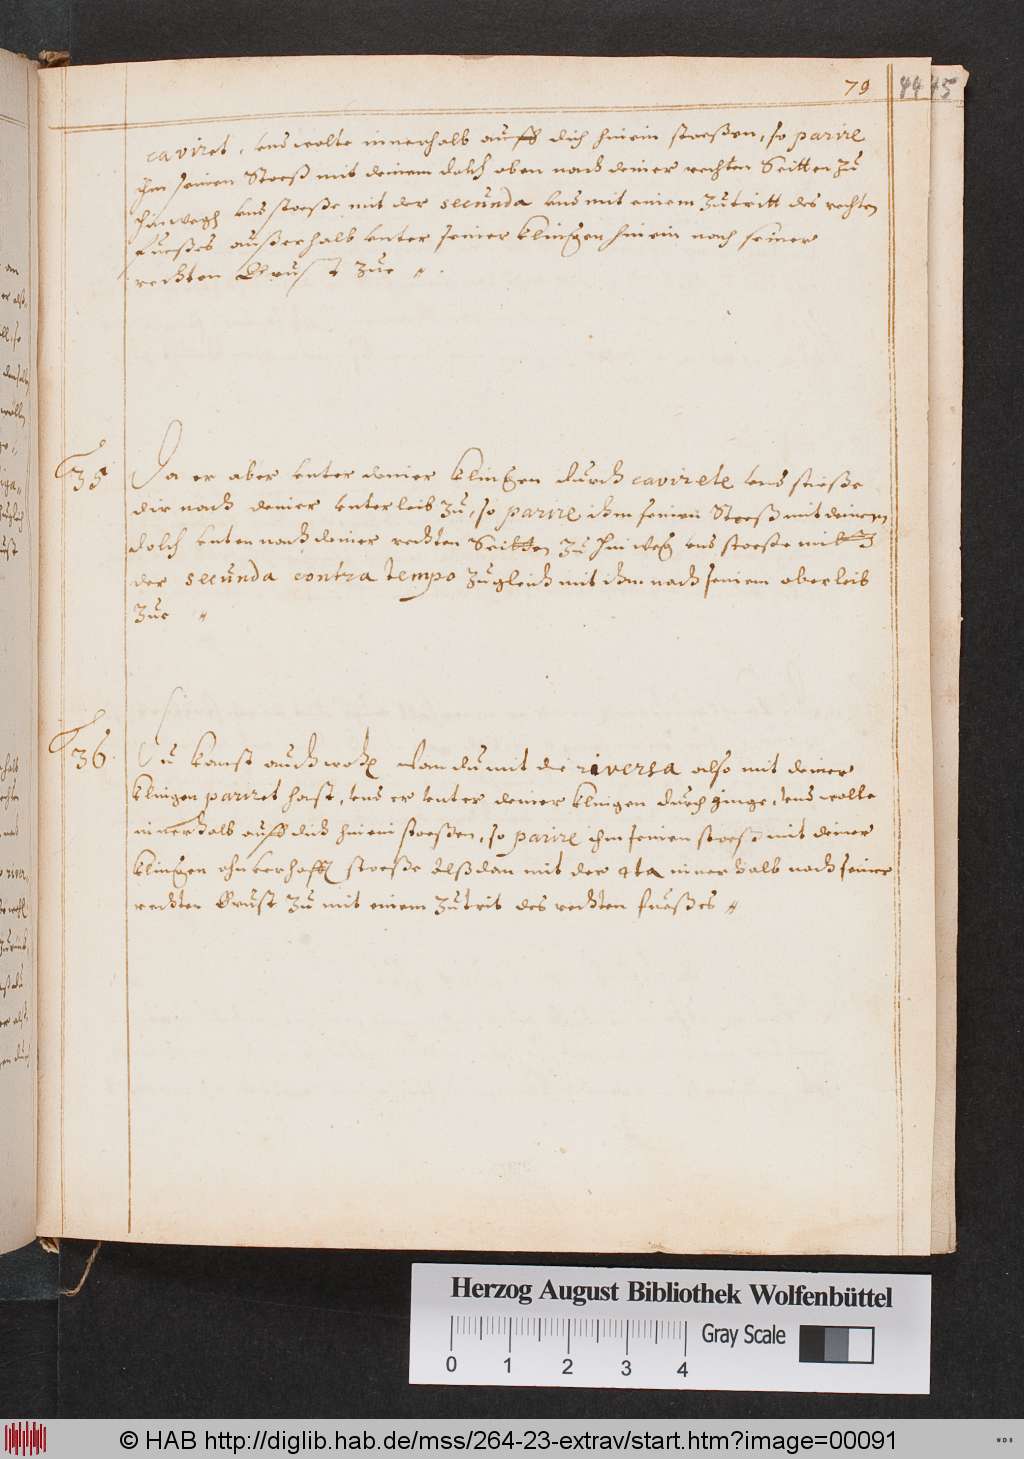 79
44 45
caviret, und wolte innerhalb auff dich hinein stoeßen, so parire
ihm seinen Stoeß mit deinem dolch oben nach deiner rechten Seitten zu
hinwegh und stoeße mit der secunda und mit einem zutritt des rechten
Fueßes außerhalb unter seiner klingen hinein nach seiner
rechten Brust zue
35
Da er aber unter deiner klingen durch cavirete und stieße
dir nach deiner unterleib zu, so parire ihm seinen Stoeß mit deinem
dolch unten nach deiner rechten Seitten zu hinweg und stoeße mitt
der secunda contra tempo zugleich mit ihm nach seinem oberleib
zue
36
Du kanst auch wan du mit die riversa also mit deiner
klingen pariret hast, und er unter deiner klingen durch ginge, und wolte
innerhalb auff dich hinein stoeßen, so parire ihm seinen stoeß mit deiner
klingen stoeße alßdan mit der 4ta innerhalb nach seiner
rechten Brust zu mit einem zutrit des rechten fueßes
Herzog August Bibliothek Wolfenbüttel
Gray Scale
0 1 2 3 4
© HAB http://diglib.hab.de/mss/264-23-extrav/start.htm?image=00091